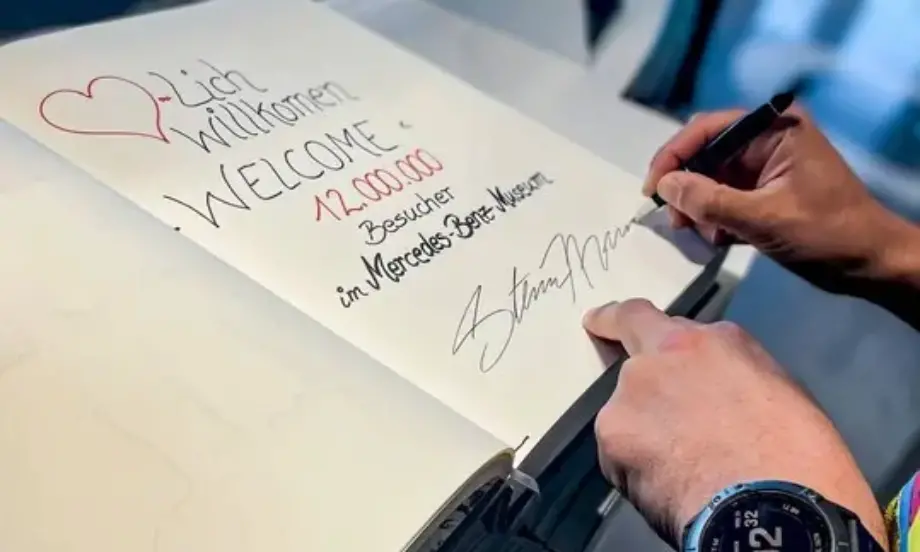 Lich
willkomen
"WELCOME"
12.000.000
Besucher
im Mercedes-Benz Museum
32
12